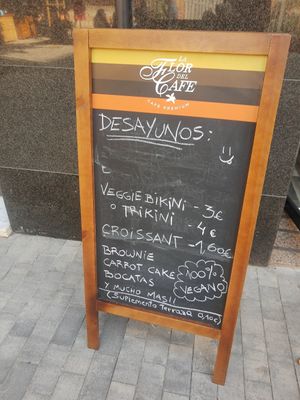 LA
FLOR
DEL
CAFÉ
CAFÉ PREMIUM
DESAYUNOS:
VEGGIE BIKINI - 3€
O TRIKINI - 4€
CROISSANT - 1,60€
BROWNIE
CARROT CAKE
BOCATAS
Y MUCHO MAS!!
100%
VEGANO
(Suplemento Terraza 0,10€)